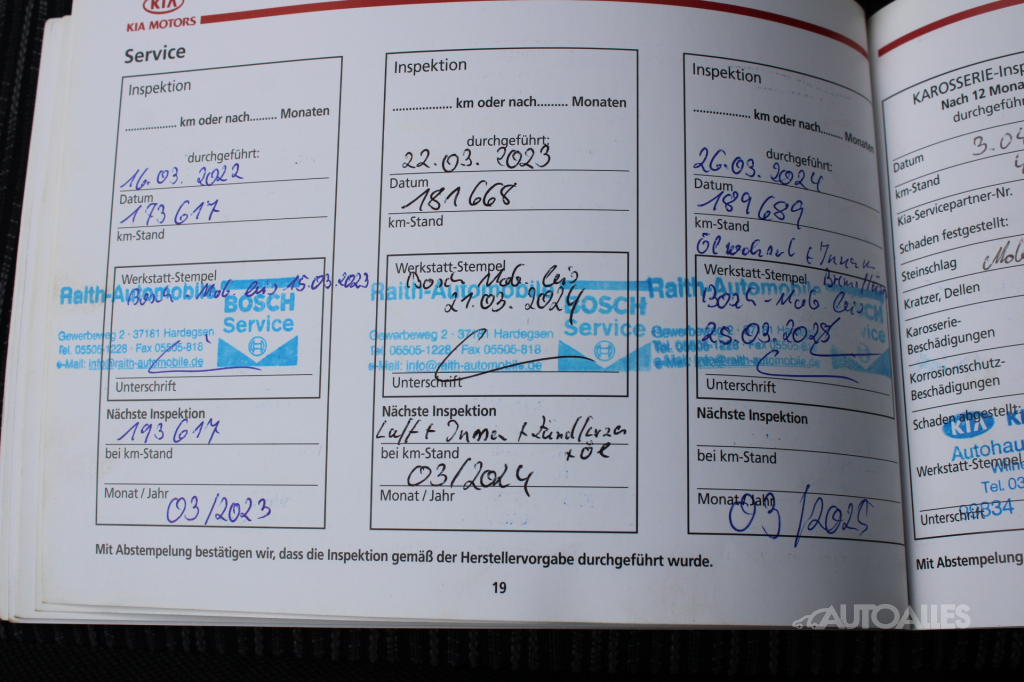 KIA
KIA MOTORS
Service
Inspektion
.................. km oder nach......... Monaten
durchgeführt:
16.03.2022
Datum
173617
km-Stand
Werkstatt-Stempel
Bosch-Mob bis 15.03.2023
Raith-Automobile
BOSCH
Service
Gewerbeweg 2 · 37181 Hardegsen
Tel. 05505-1228 · Fax 05505-818
e-Mail: info@raith-automobile.de
Unterschrift
Nächste Inspektion
193617
bei km-Stand
Monat / Jahr
03/2023
Inspektion
.................. km oder nach......... Monaten
durchgeführt:
22.03.2023
Datum
181668
km-Stand
Werkstatt-Stempel
Bosch Mob. bis
21.03.2024
Raith-Automobile
BOSCH
Service
Gewerbeweg 2 · 37181 Hardegsen
Tel. 05505-1228 · Fax 05505-818
e-Mail: info@raith-automobile.de
Unterschrift
Nächste Inspektion
Luft + Innen + Zündkerzen
+ Öl
bei km-Stand
03/2024
Monat / Jahr
Inspektion
.................. km oder nach........ Monaten
durchgeführt:
26.03.2024
Datum
189689
km-Stand
Ölwechsel +
Werkstatt-Stempel
Bosch-Mob bis
25.03.2025
Raith-Automobile
Service
Gewerbeweg 2 · 37181 Hardegsen
Tel. 05505-1228 · Fax 05505-818
e-Mail: info@raith-automobile.de
Unterschrift
Nächste Inspektion
bei km-Stand
Monat / Jahr
03/2025
Mit Abstempelung bestätigen wir, dass die Inspektion gemäß der Herstellervorgabe durchgeführt wurde.
19
KAROSSERIE-Insp
Nach 12 Mona
durchgeführ
3.04
Datum
km-Stand
Kia-Servicepartner-Nr.
Schaden festgestellt:
Steinschlag
Kratzer, Dellen
Karosserie-
Beschädigungen
Korrosionsschutz-
Beschädigungen
Schaden abgestellt:
KIA
Autohau
Wilhe
Werkstatt-Stempel
Tel. 03
Unterschrift
Mit Abstempelung
AUTOALLES